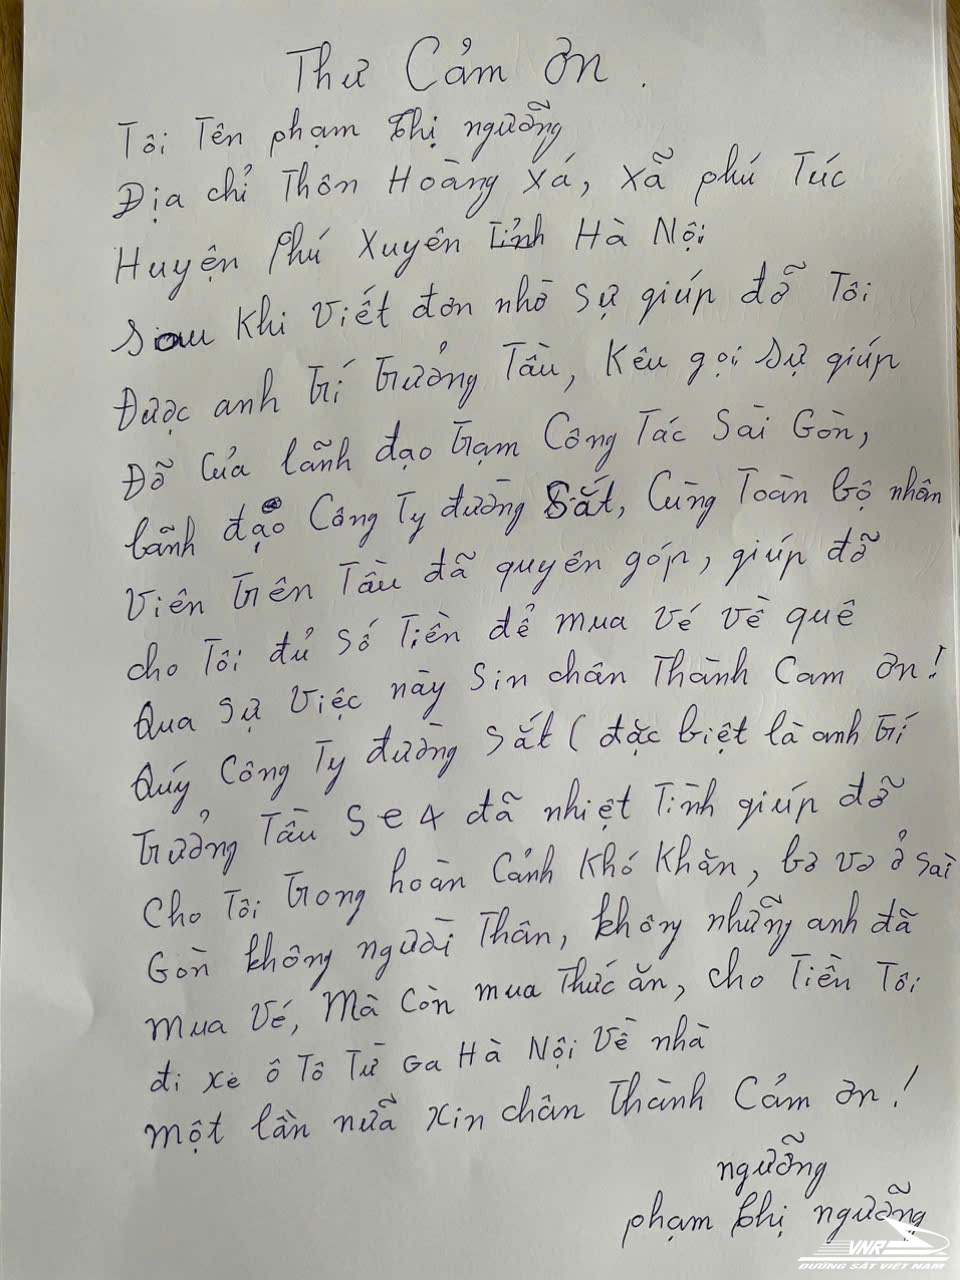 Thư Cảm ơn.
Tôi Tên phạm thị ngưỡng
Địa chỉ Thôn Hoàng Xá, xã phú Túc
Huyện Phú Xuyên Tỉnh Hà Nội
Sau khi viết đơn nhờ sự giúp đỡ Tôi
Được anh Trí Trưởng Tàu, Kêu gọi sự giúp
Đỡ của lãnh đạo trạm Công Tác Sài Gòn,
lãnh đạo Công Ty đường Sắt, Cùng Toàn bộ nhân
Viên trên Tàu đã quyên góp, giúp đỡ
cho Tôi đủ Số Tiền để mua vé về quê
Qua sự việc này Sin chân Thành Cam ơn!
Quý Công Ty đường Sắt (đặc biệt là anh Trí
Trưởng Tàu Se4 đã nhiệt Tình giúp đỡ
Cho Tôi trong hoàn Cảnh Khó Khăn, bơ vơ ở Sài
Gòn không người Thân, không những anh đã
mua vé, Mà Còn mua Thức ăn, cho Tiền Tôi
đi xe ô Tô Từ Ga Hà Nội Về nhà
một lần nữa xin chân Thành Cảm ơn!
ngưỡng
phạm thị ngưỡng
VNR
ĐƯỜNG SẮT VIỆT NAM